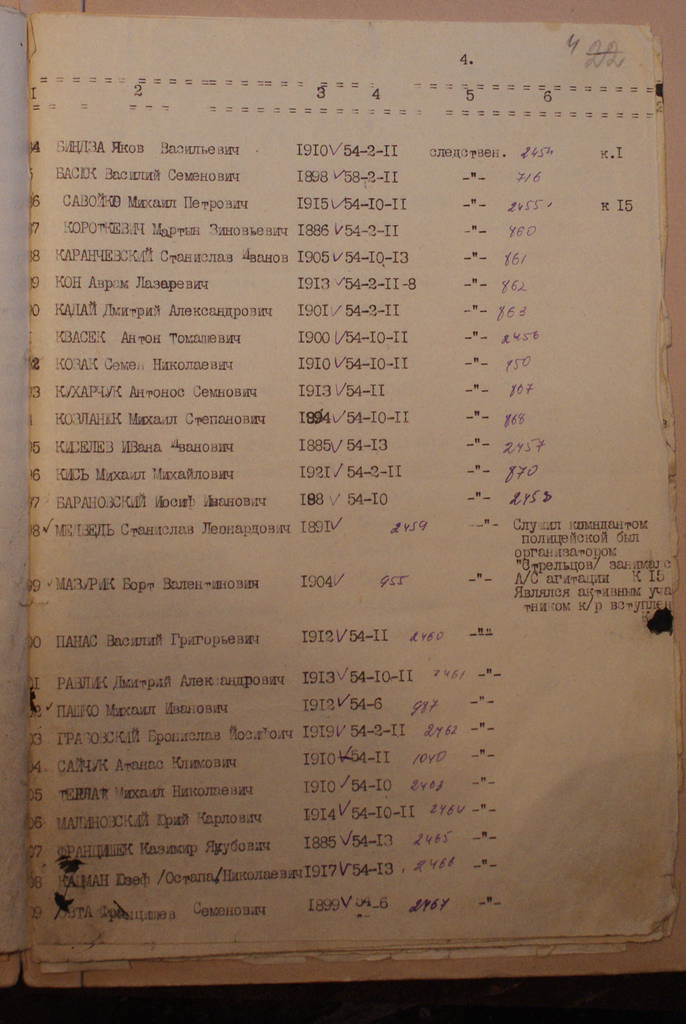 4. 4 22
I 2 3 4 5 6
БИНДЗА Яков Васильевич I9I0 54-2-II следствен. 2454 к.I
БАСЮК Василий Семенович I898 58-2-II -"- 716
САВОЙКО Михаил Петрович I9I5 54-I0-II -"- 2455 к I5
КОРОТКЕВИЧ Мартын Зиновьевич I886 54-2-II -"- 860
КАРАНЧЕВСКИЙ Станислав Иванов I905 54-I0-I3 -"- 861
КОН Аврам Лазаревич I9I3 54-2-II-8 -"- 862
КАДАЙ Дмитрий Александрович I90I 54-2-II -"- 863
КВАСЕК Антон Томашевич I900 54-I0-II -"- 2456
КОЗАК Семен Николаевич I9I0 54-I0-II -"-
КУХАРЧУК Антонос Семнович I9I3 54-II -"- 867
КОЗЛАНЮК Михаил Степанович I894 54-I0-II -"- 868
КИСЕЛЕВ ИВана Иванович I885 54-I3 -"- 2457
КИСЬ Михаил Михайлович I92I 54-2-II -"- 870
БАРАНОВСКИЙ Иосиф Иванович I88 54-I0 -"- 2458
МЕДВЕДЬ Станислав Леонардович I89I 2459 -"- Служил комндантом
полицейской был
организатором
"Стрельцов/ занималс
А/С агитации К I5
МАЗУРИК Борт Валентинович I904 955 -"- Являлся активным уча
тником к/р вступлен
ПАНАС Василий Григорьевич I9I2 54-II 2460 -"-
РАВЛИК Дмитрий Александрович I9I3 54-I0-II 2461 -"-
ПАШКО Михаил Иванович I9I2 54-6 987 -"-
ГРАБОВСКИЙ Бронислав I9I9 54-2-II 2462 -"-
САЙЧУК Атанас Климович I9I0 54-II 1040 -"-
Михаил Николаевич I9I0 54-I0 -"-
МАЛИНОВСКИЙ Юрий Карлович I9I4 54-I0-II 2464 -"-
ФРАНЦИШЕК Казимир Якубович I885 54-I3 2465 -"-
КАЦМАН Юзеф /Остапа/Николаевич I9I7 54-I3 2466 -"-
Семенович I899 54-6 2467 -"-